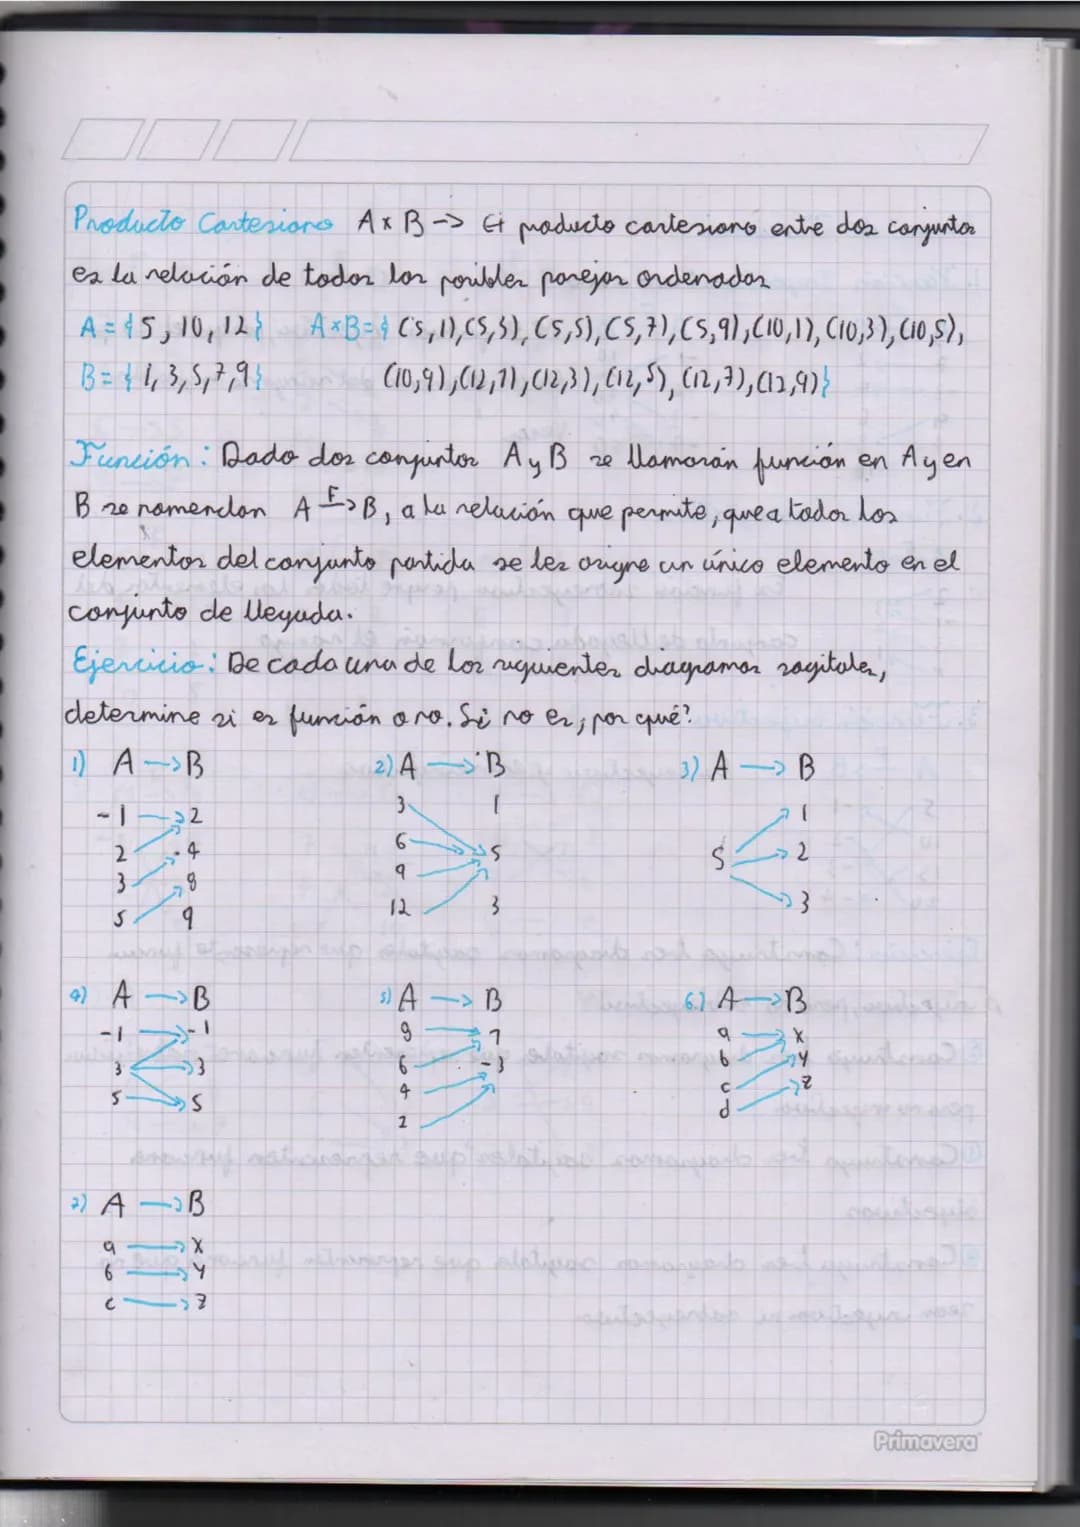 Producto Cartesiano A x B -> El producto cartesiano entre dos conjuntos
es la relación de todos los posibles parejas ordenadas
A = {5, 10, 12} A×B = { (5,1),(5,3),(5,5),(5,7),(5,9),(10,1),(10,3),(10,5),
B = { 1, 3, 5, 7, 9} (10,9),(12,1),(12,3),(12,5),(12,7),(12,9)}
Función: Dado dos conjuntos A y B se llamarán función en A y en
B se nomendan A F-> B, a la relación que permite, que a todos los
elementos del conjunto partida se les asigne un único elemento en el
conjunto de llegada.
Ejercicio: De cada una de los siguientes diagramas sagitales,
determine si es función o no. Si no es, por qué?
1) A -> B 2) A -> B 3) A -> B
-1 2 3 1 1
2 4 6 5 5 2
3 8 9 3
5 9 12 3
4) A -> B 5) A -> B 6) A -> B
-1 -1 9 7 a x
3 3 6 -3 b y
5 5 4 c z
2 d
7) A -> B
a x
b y
c z
Primavera